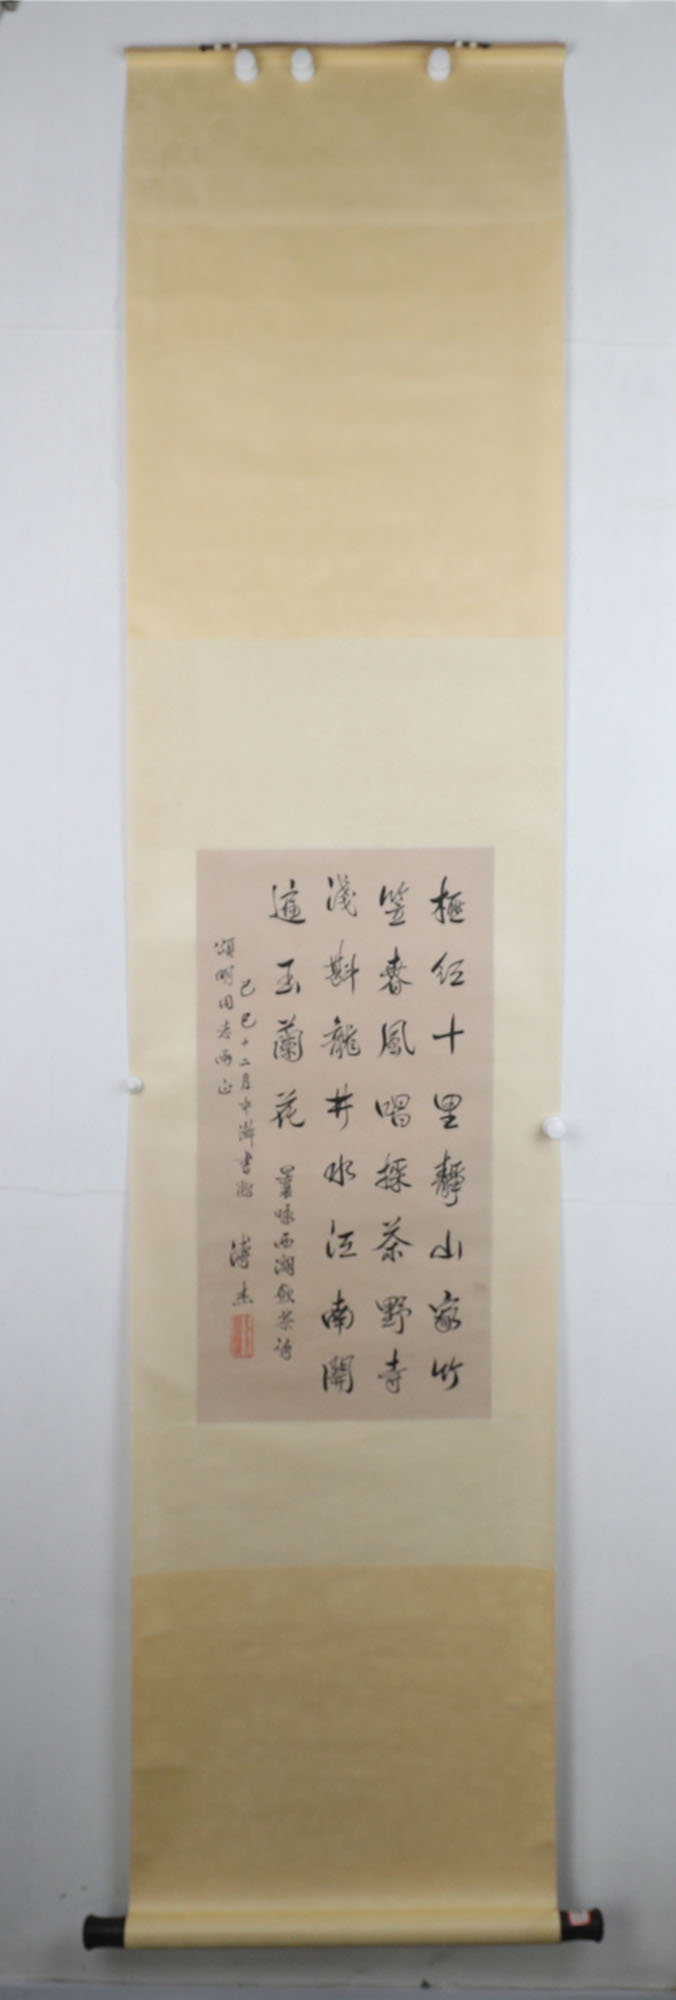 極紅十里靜山家竹
笠春風唱採茶野寺
淺斟龍井水江南開
遍玉蘭花
曩咏西湖飲茶詩
己巳十二月中澣書應
溥杰
頌明同志兩正